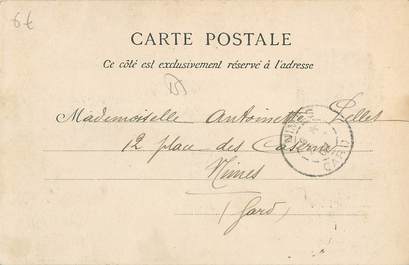 6€
CARTE POSTALE
Ce côté est exclusivement réservé à l'adresse
Mademoiselle Antoinette Pellet
12 place des Casernes
Nimes
(Gard)
NIMES
GARD